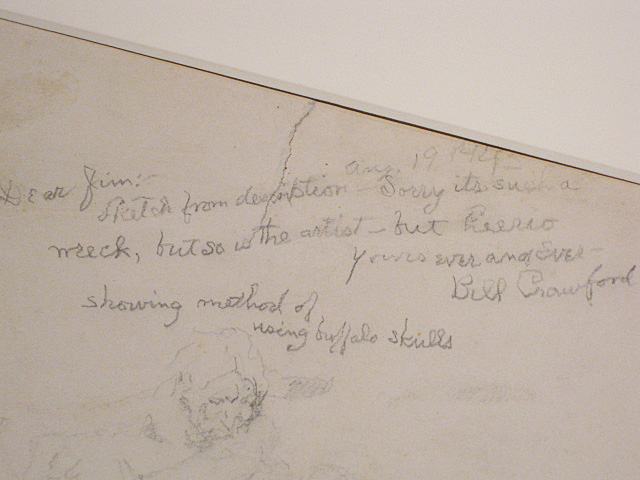 Aug. 19
Dear Jim:-
Sketch from description - Sorry its such a
wreck, but so is the artist - but
Yours ever and Ever -
Bill Crawford
showing method of
using buffalo skulls